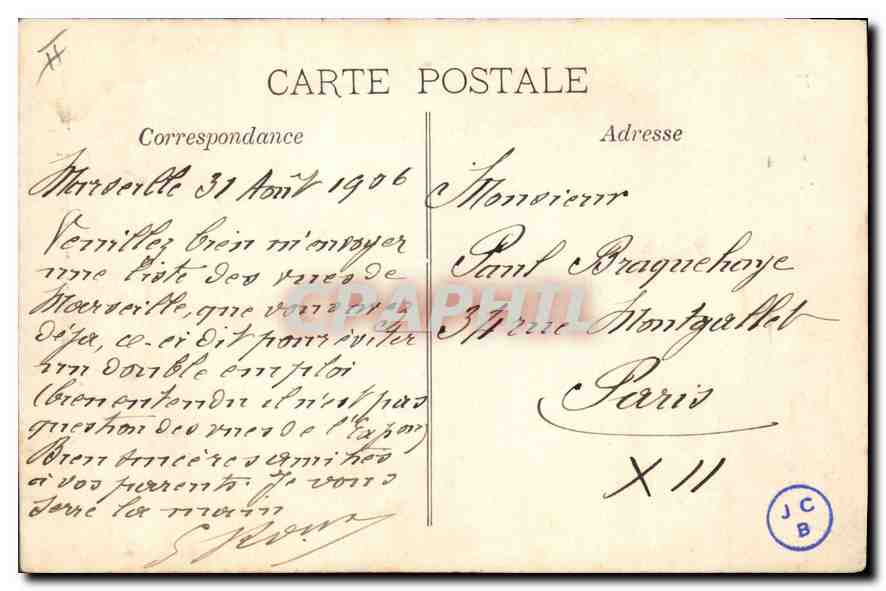 CARTE POSTALE
Correspondance
Marseille 31 Août 1906
Veuillez bien m'envoyer
une liste des vues de
Marseille, que vous avez
déja, ce-ci dit pour éviter
un double emploi
(bien entendu il n'est pas
question des vues de l'Expon)
Bien sincères amitiés
à vos parents. Je vous
serre la main
Adresse
Monsieur
Paul Braquehaye
34 rue Montgallet
Paris
XII
J C
B
CPAPHIL